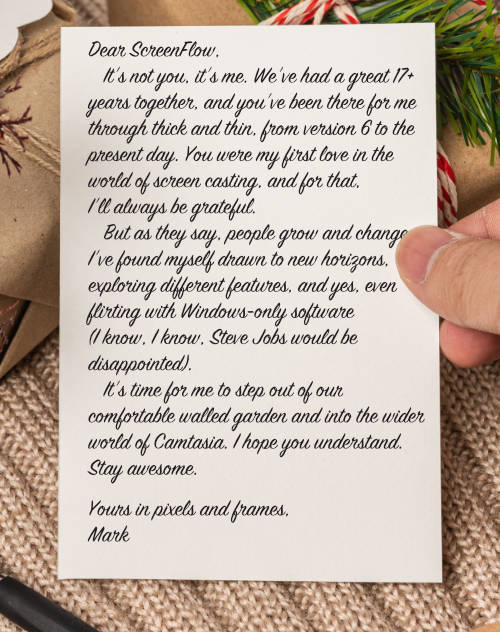 Dear ScreenFlow,
It's not you, it's me. We've had a great 17+
years together, and you've been there for me
through thick and thin, from version 6 to the
present day. You were my first love in the
world of screen casting, and for that,
I'll always be grateful.
But as they say, people grow and change
I've found myself drawn to new horizons,
exploring different features, and yes, even
flirting with Windows-only software
(I know, I know, Steve Jobs would be
disappointed).
It's time for me to step out of our
comfortable walled garden and into the wider
world of Camtasia. I hope you understand.
Stay awesome.
Yours in pixels and frames,
Mark